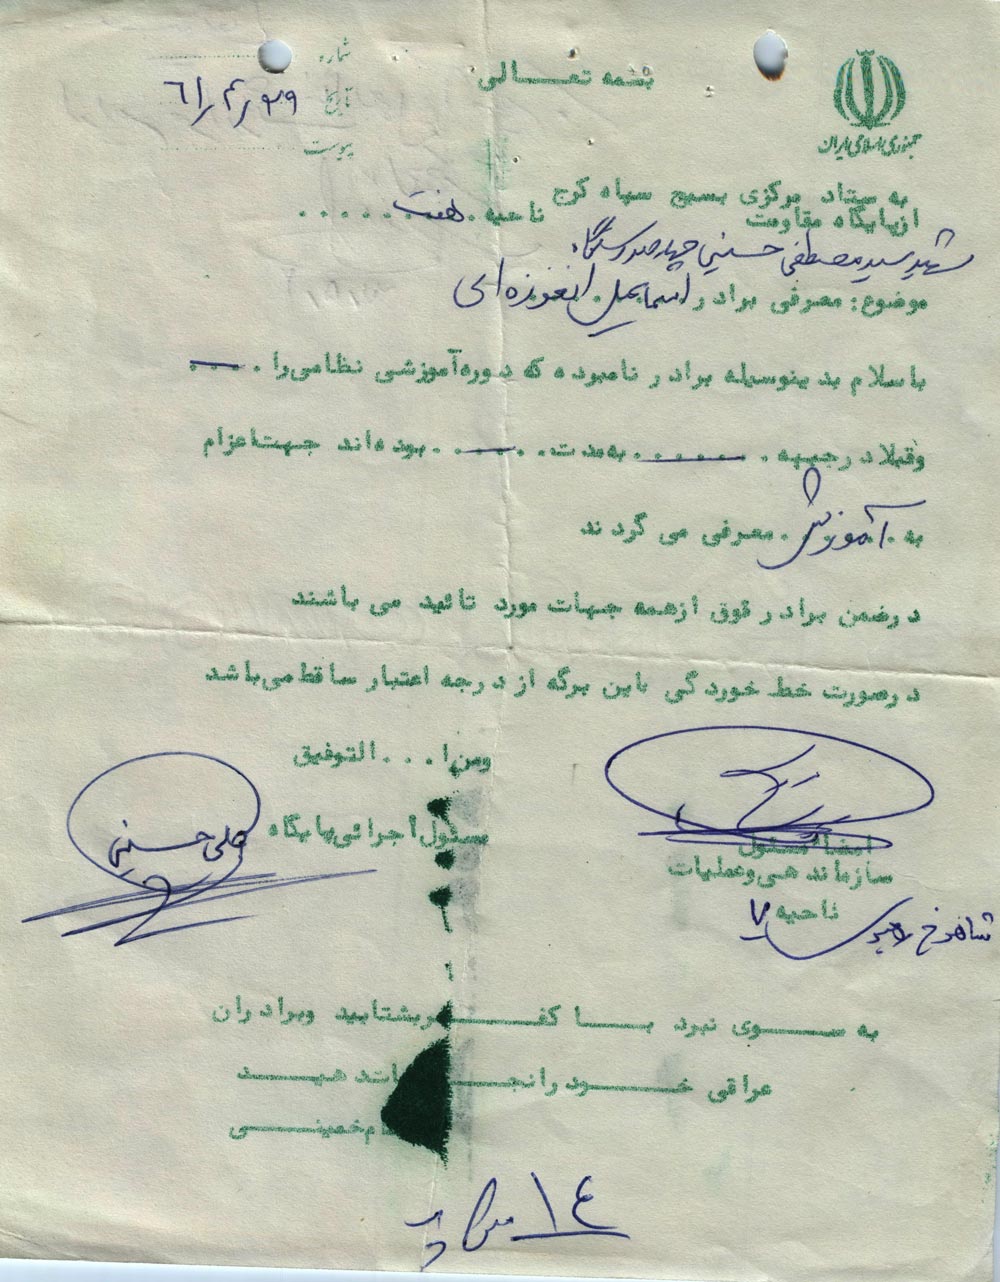 بسمه تعالی
جمهوری اسلامی ایران
شماره
تاریخ ۶۱/۴/۲۹
پیوست
به ستاد مرکزی بسیج سپاه کرج
از پایگاه مقاومت ناحیه هفت
شهید سید مصطفی حسینی چهارصد دستگاه
موضوع: معرفی برادر اسماعیل
باسلام بدینوسیله برادر نامبرده که دوره آموزشی نظامی را ....
وقبلا در جبهه ...... به مدت ...... بوده اند جهت اعزام
به آموزش معرفی می گردند
درضمن برادر فوق ازهمه جهات مورد تائید می باشند
درصورت خط خوردگی این برگه از درجه اعتبار ساقط می باشد
ومن ا... التوفیق
مسئول اجرائی پایگاه
علی حسینی
امضاء مسئول
سازماندهی و عملیات
ناحیه ۷
شاهرخ
به سوی نبرد با کفر بشتابید وبرادران
عراقی خود را نجات دهید
امام خمینی
۱۴